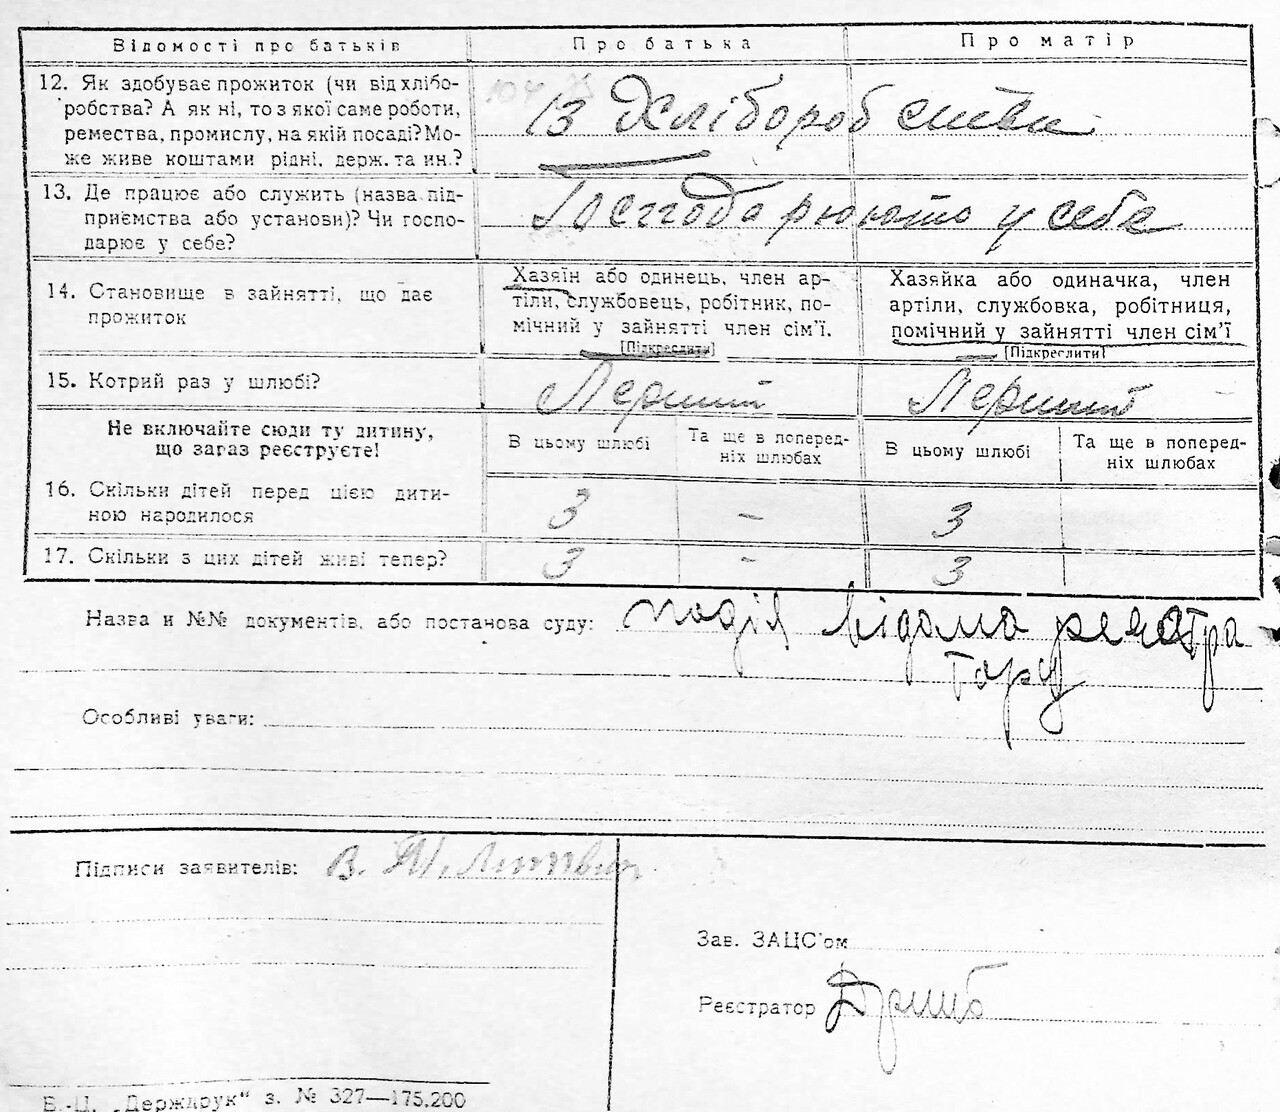 Відомості про батьків Про батька Про матір
12. Як здобуває прожиток (чи від хлібо-
робства? А як ні, то з якої саме роботи,
ремества, промислу, на якій посаді? Мо-
же живе коштами рідні, держ. та ин.?
Із Хліборобства
13. Де працює або служить (назва під-
приємства або установи)? Чи госпо-
дарює у себе?
Господарюють у себе
14. Становище в зайнятті, що дає
прожиток
Хазяїн або одинець, член ар-
тіли, службовець, робітник, по-
мічний у зайнятті член сім'ї.
[Підкреслити]
Хазяйка або одиначка, член
артіли, службовка, робітниця,
помічний у зайнятті член сім'ї
[Підкреслити]
15. Котрий раз у шлюбі? Перший Перший
Не включайте сюди ту дитину,
що зараз реєструєте!
В цьому шлюбі Та ще в поперед-
ніх шлюбах
В цьому шлюбі Та ще в поперед-
ніх шлюбах
16. Скільки дітей перед цією дити-
ною народилося
3 - 3
17. Скільки з цих дітей живі тепер? 3 - 3
Назва и №№ документів, або постанова суду: подія відома реєстра
тору
Особливі уваги:
Підписи заявителів: В. М. Литвин
Зав. ЗАЦС'ом
Реєстратор
В.-Ц. „Держдрук“ з. № 327—175.200